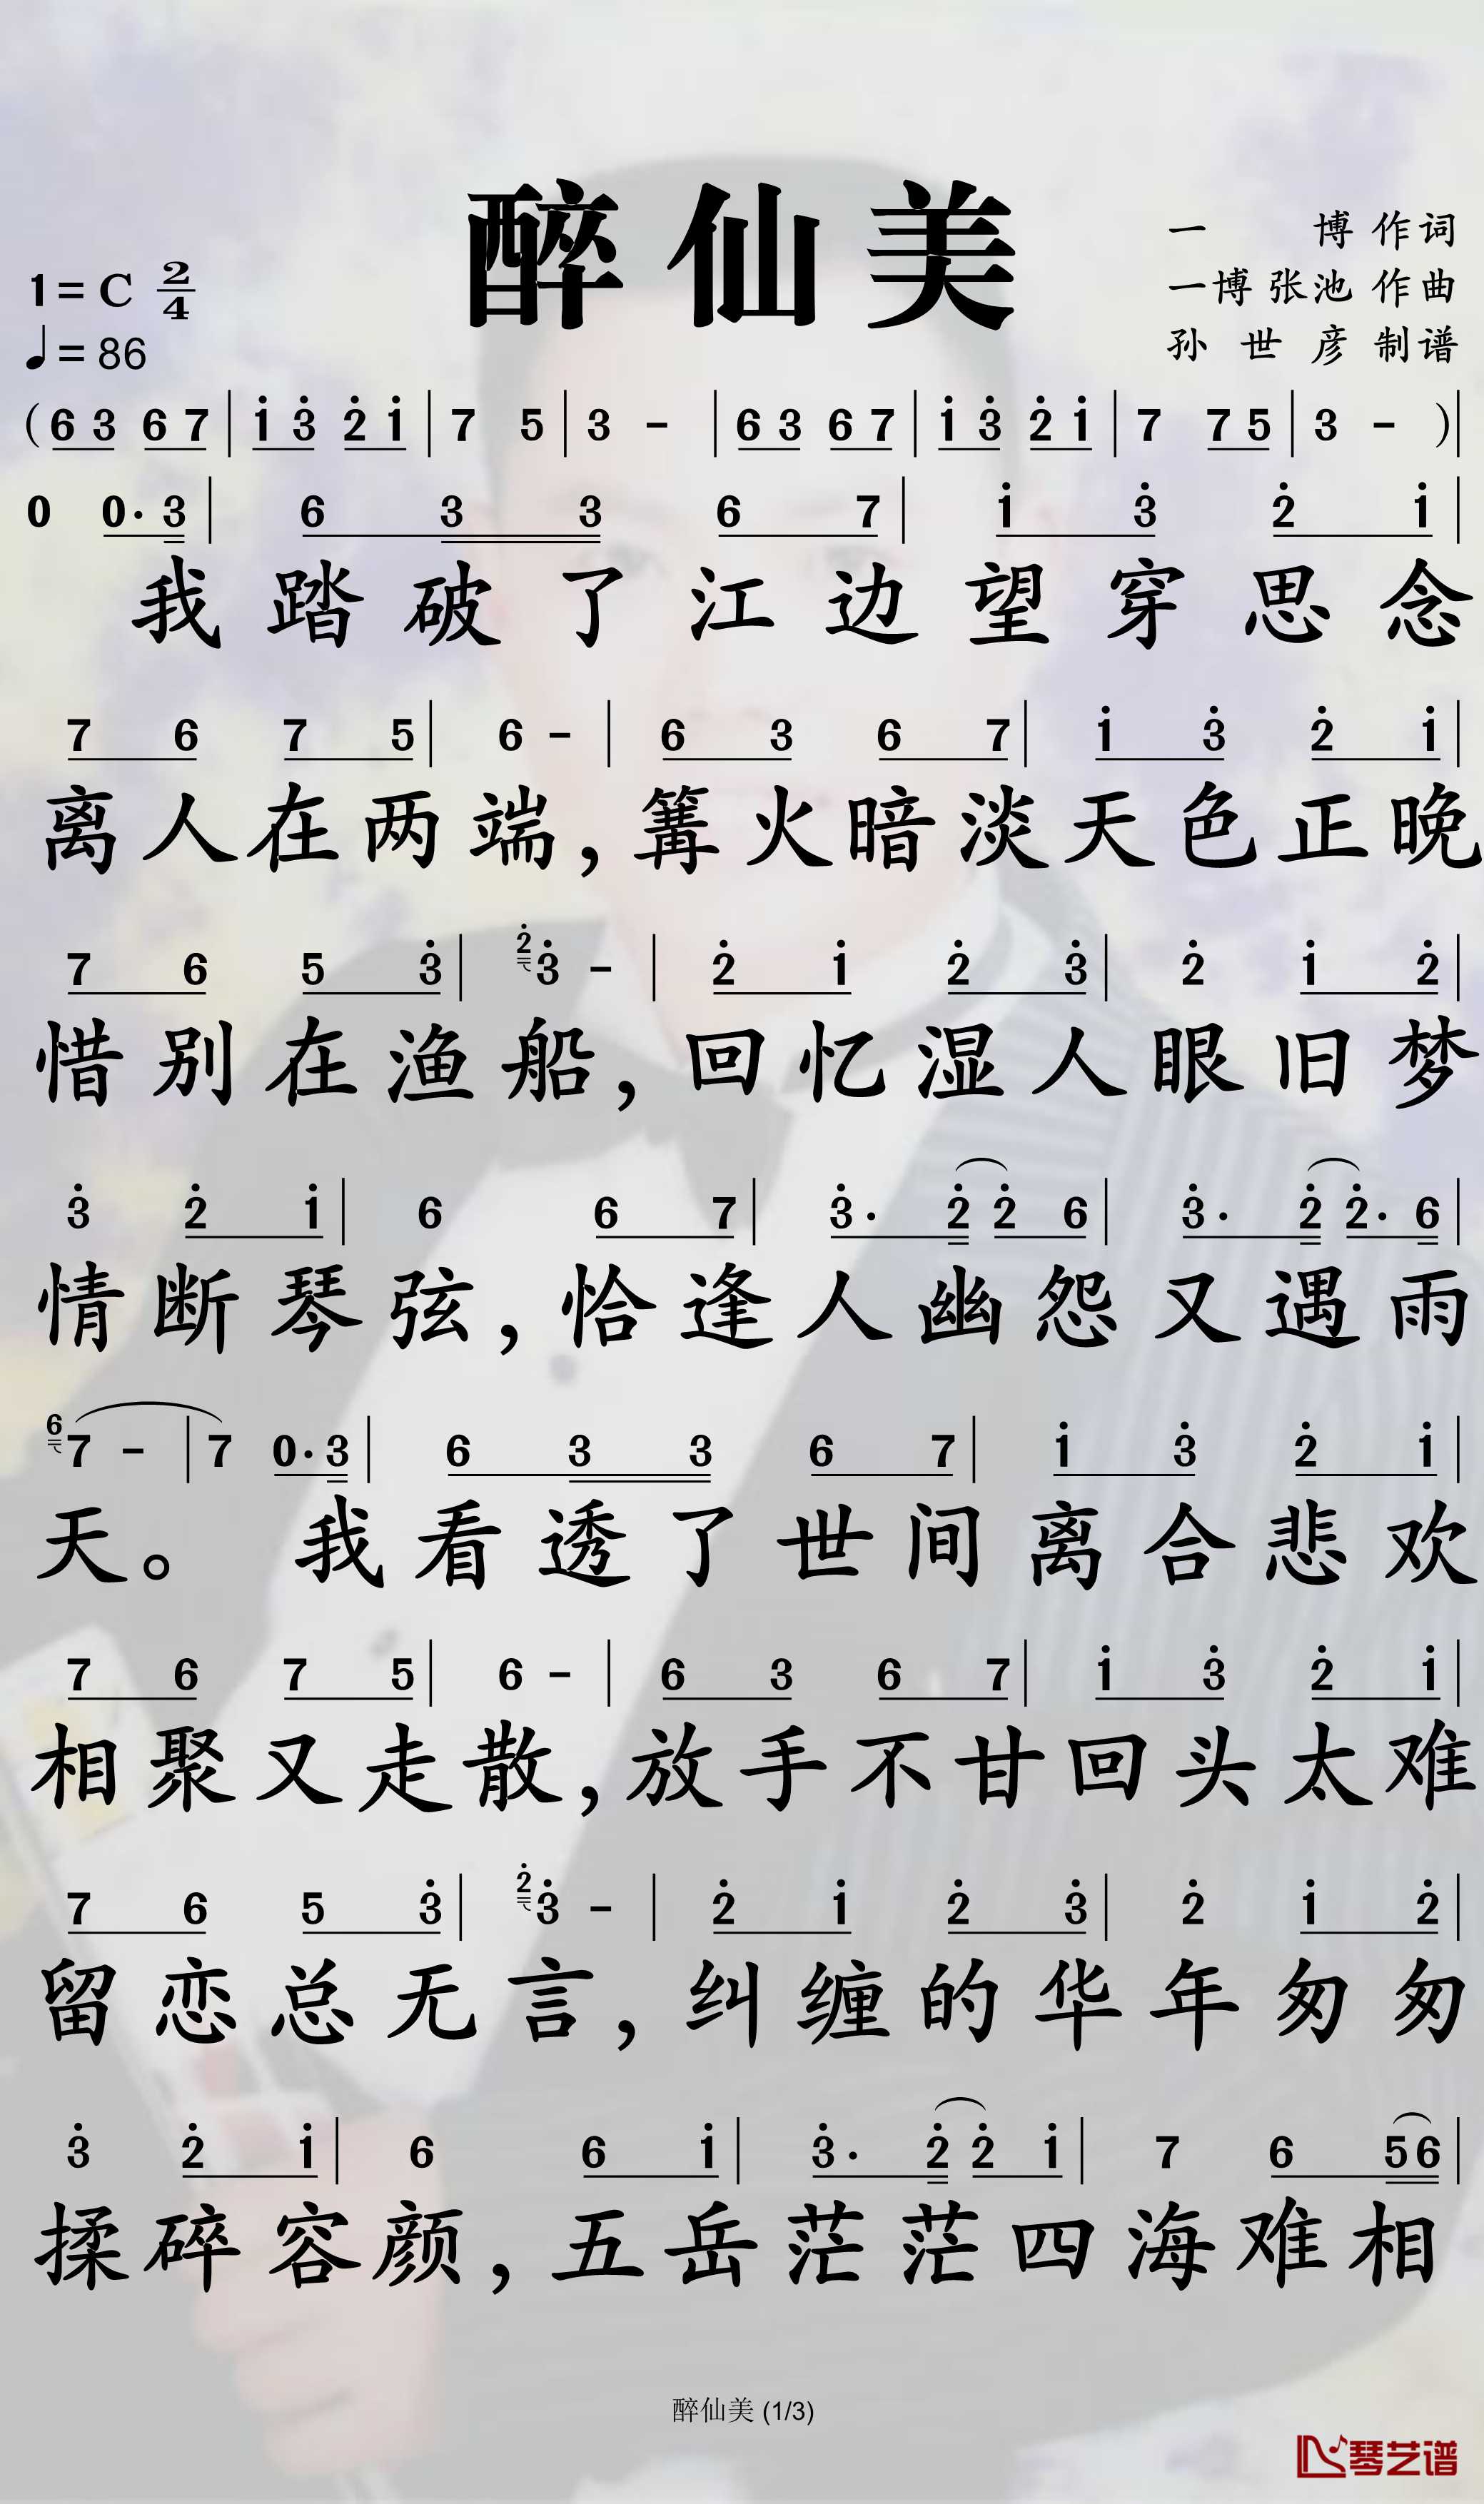 醉仙美
一 博 作词
一博 张池 作曲
孙 世 彦 制谱
1=C 2/4
♩=86
(6 3 6 7 | i 3 2 i | 7 5 | 3 - | 6 3 6 7 | i 3 2 i | 7 7 5 | 3 - )|
0 0· 3 | 6 3 3 6 7 | i 3 2 i |
我踏破了江边望穿思念
7 6 7 5 | 6 - | 6 3 6 7 | i 3 2 i |
离人在两端,篝火暗淡天色正晚
7 6 5 3 | 2 3 - | 2 i 2 3 | 2 i 2 |
惜别在渔船,回忆湿人眼旧梦
3 2 i | 6 6 7 | 3· 2 2 6 | 3· 2 2· 6 |
情断琴弦,恰逢人幽怨又遇雨
6 7 - | 7 0· 3 | 6 3 3 6 7 | i 3 2 i |
天。 我看透了世间离合悲欢
7 6 7 5 | 6 - | 6 3 6 7 | i 3 2 i |
相聚又走散,放手不甘回头太难
7 6 5 3 | 2 3 - | 2 i 2 3 | 2 i 2 |
留恋总无言,纠缠的华年匆匆
3 2 i | 6 6 i | 3· 2 2 i | 7 6 5 6 |
揉碎容颜,五岳茫茫四海难相
醉仙美 (1/3)
琴艺谱